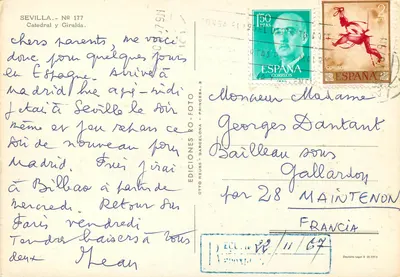 SEVILLA.- Nº 177
Catedral y Giralda.
chers parents, me voici
donc pour quelques jours
en Espagne. Arrivé à
madrid l'après-midi
j'étais à Séville le soir
même et je repars ce
soir de nouveau pour
Madrid. Puis j'irai
à Bilbao à partir de
mercredi. Retour sur
Paris vendredi
Tendres baisers à vous
deux Jean
EDICIONES RO-FOTO
50
PTS
ESPAÑA
CORREOS
ESPAÑA
Monsieur Madame
Georges Dantant
Bailleau sous
Gallardon
par 28 MAINTENON
FRANCIA
22/11/67